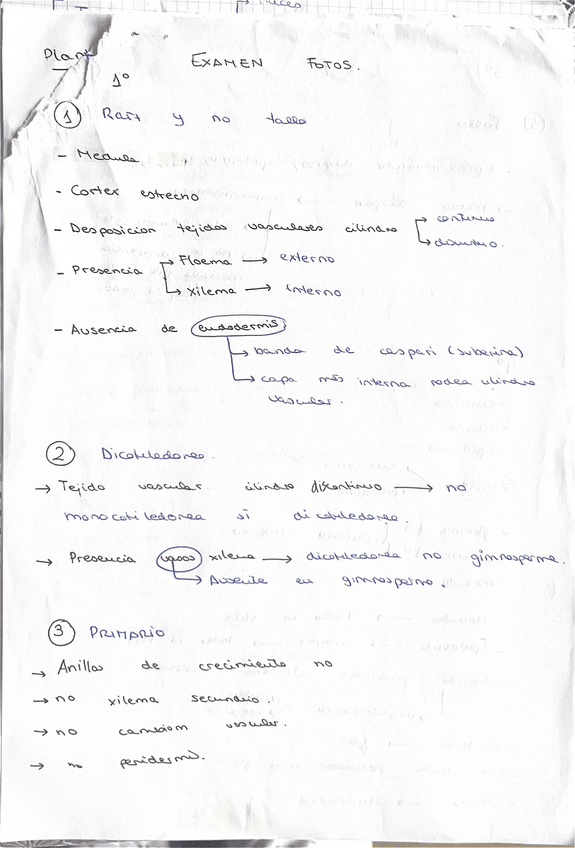 Plant
EXAMEN FOTOS.
1º
① Raíz y no tallo
- Medula
- Cortex estrecho
- Desposicion tejidos vasculares cilindro → continuo
→ discontinuo.
- Presencia → Floema → externo
→ xilema → interno
- Ausencia de endodermis
→ banda de caspari (suberina)
→ capa más interna rodea cilindro
vascular.
② Dicotiledonea.
→ Tejido vascular cilindro discontinuo → no
monocotiledonea si dicotiledonea.
→ Presencia vasos xilema → dicotiledonea no gimnosperma.
→ Ausente en gimnosperma.
③ PRIMARIO
→ Anillos de crecimiento no
→ no xilema secundario.
→ no cambiom vascular.
→ no peridermis.